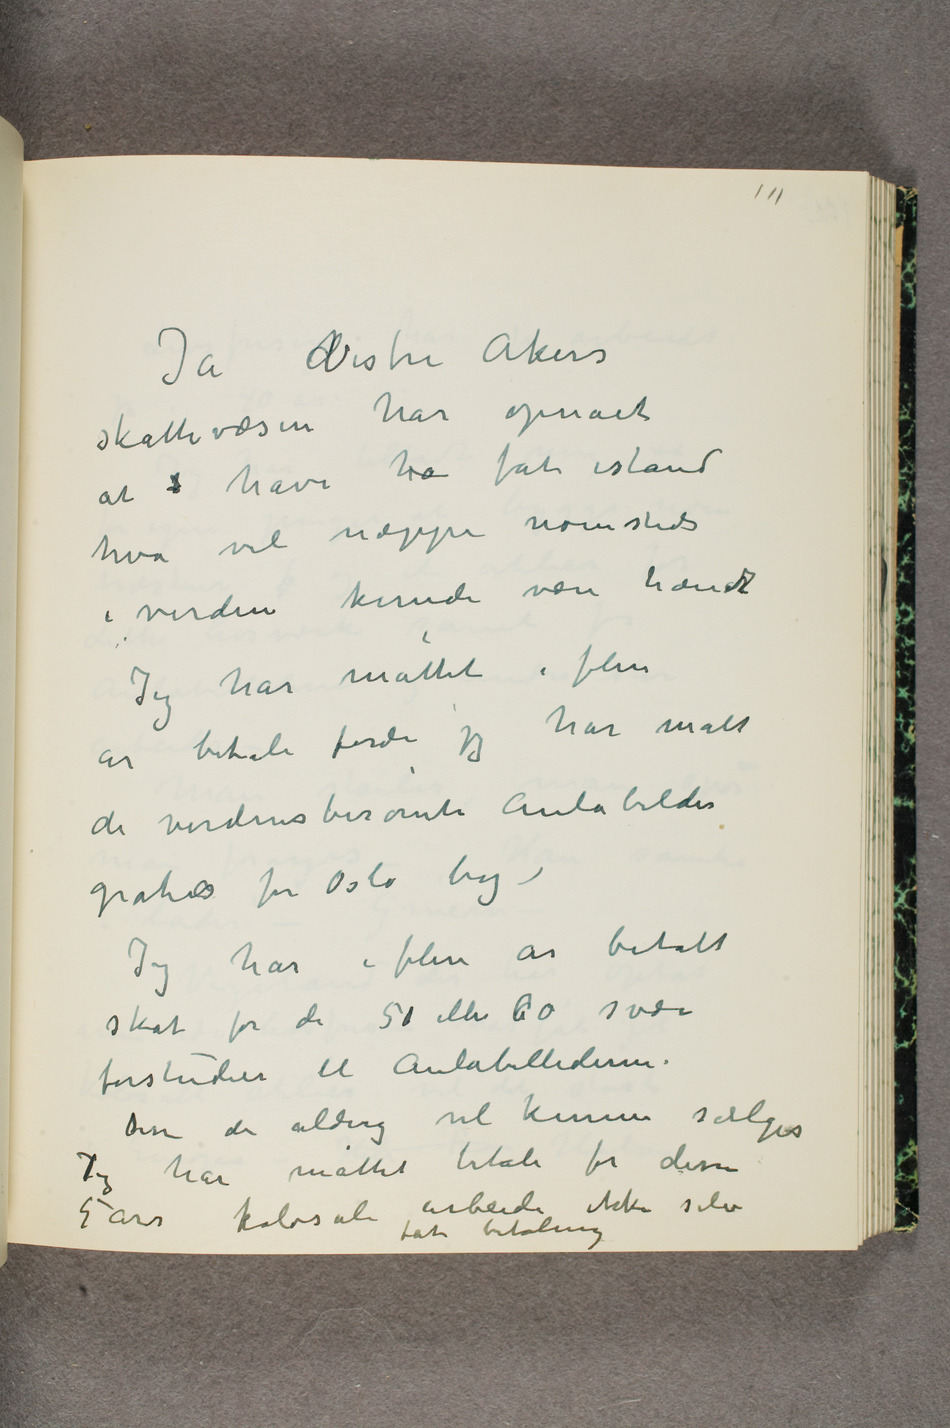 111
Ja Vestre Akers
skattevæsen har opnaaet
at have ha fåt istand
hva vel neppe noensteds
i verden kunde være hændt
Jeg har måttet i flere
år betale fordi jeg har malt
de verdensberømte Aulabilder
gratis for Oslo by –
Jeg har i flere år betalt
skat for de 50 eller 60 svære
forstudier til Aulabillederne.
som de aldrig vil kunne sælges
Jeg har måttet betale for disse
5 års kolosale arbeide ikke selv
fåt betaling